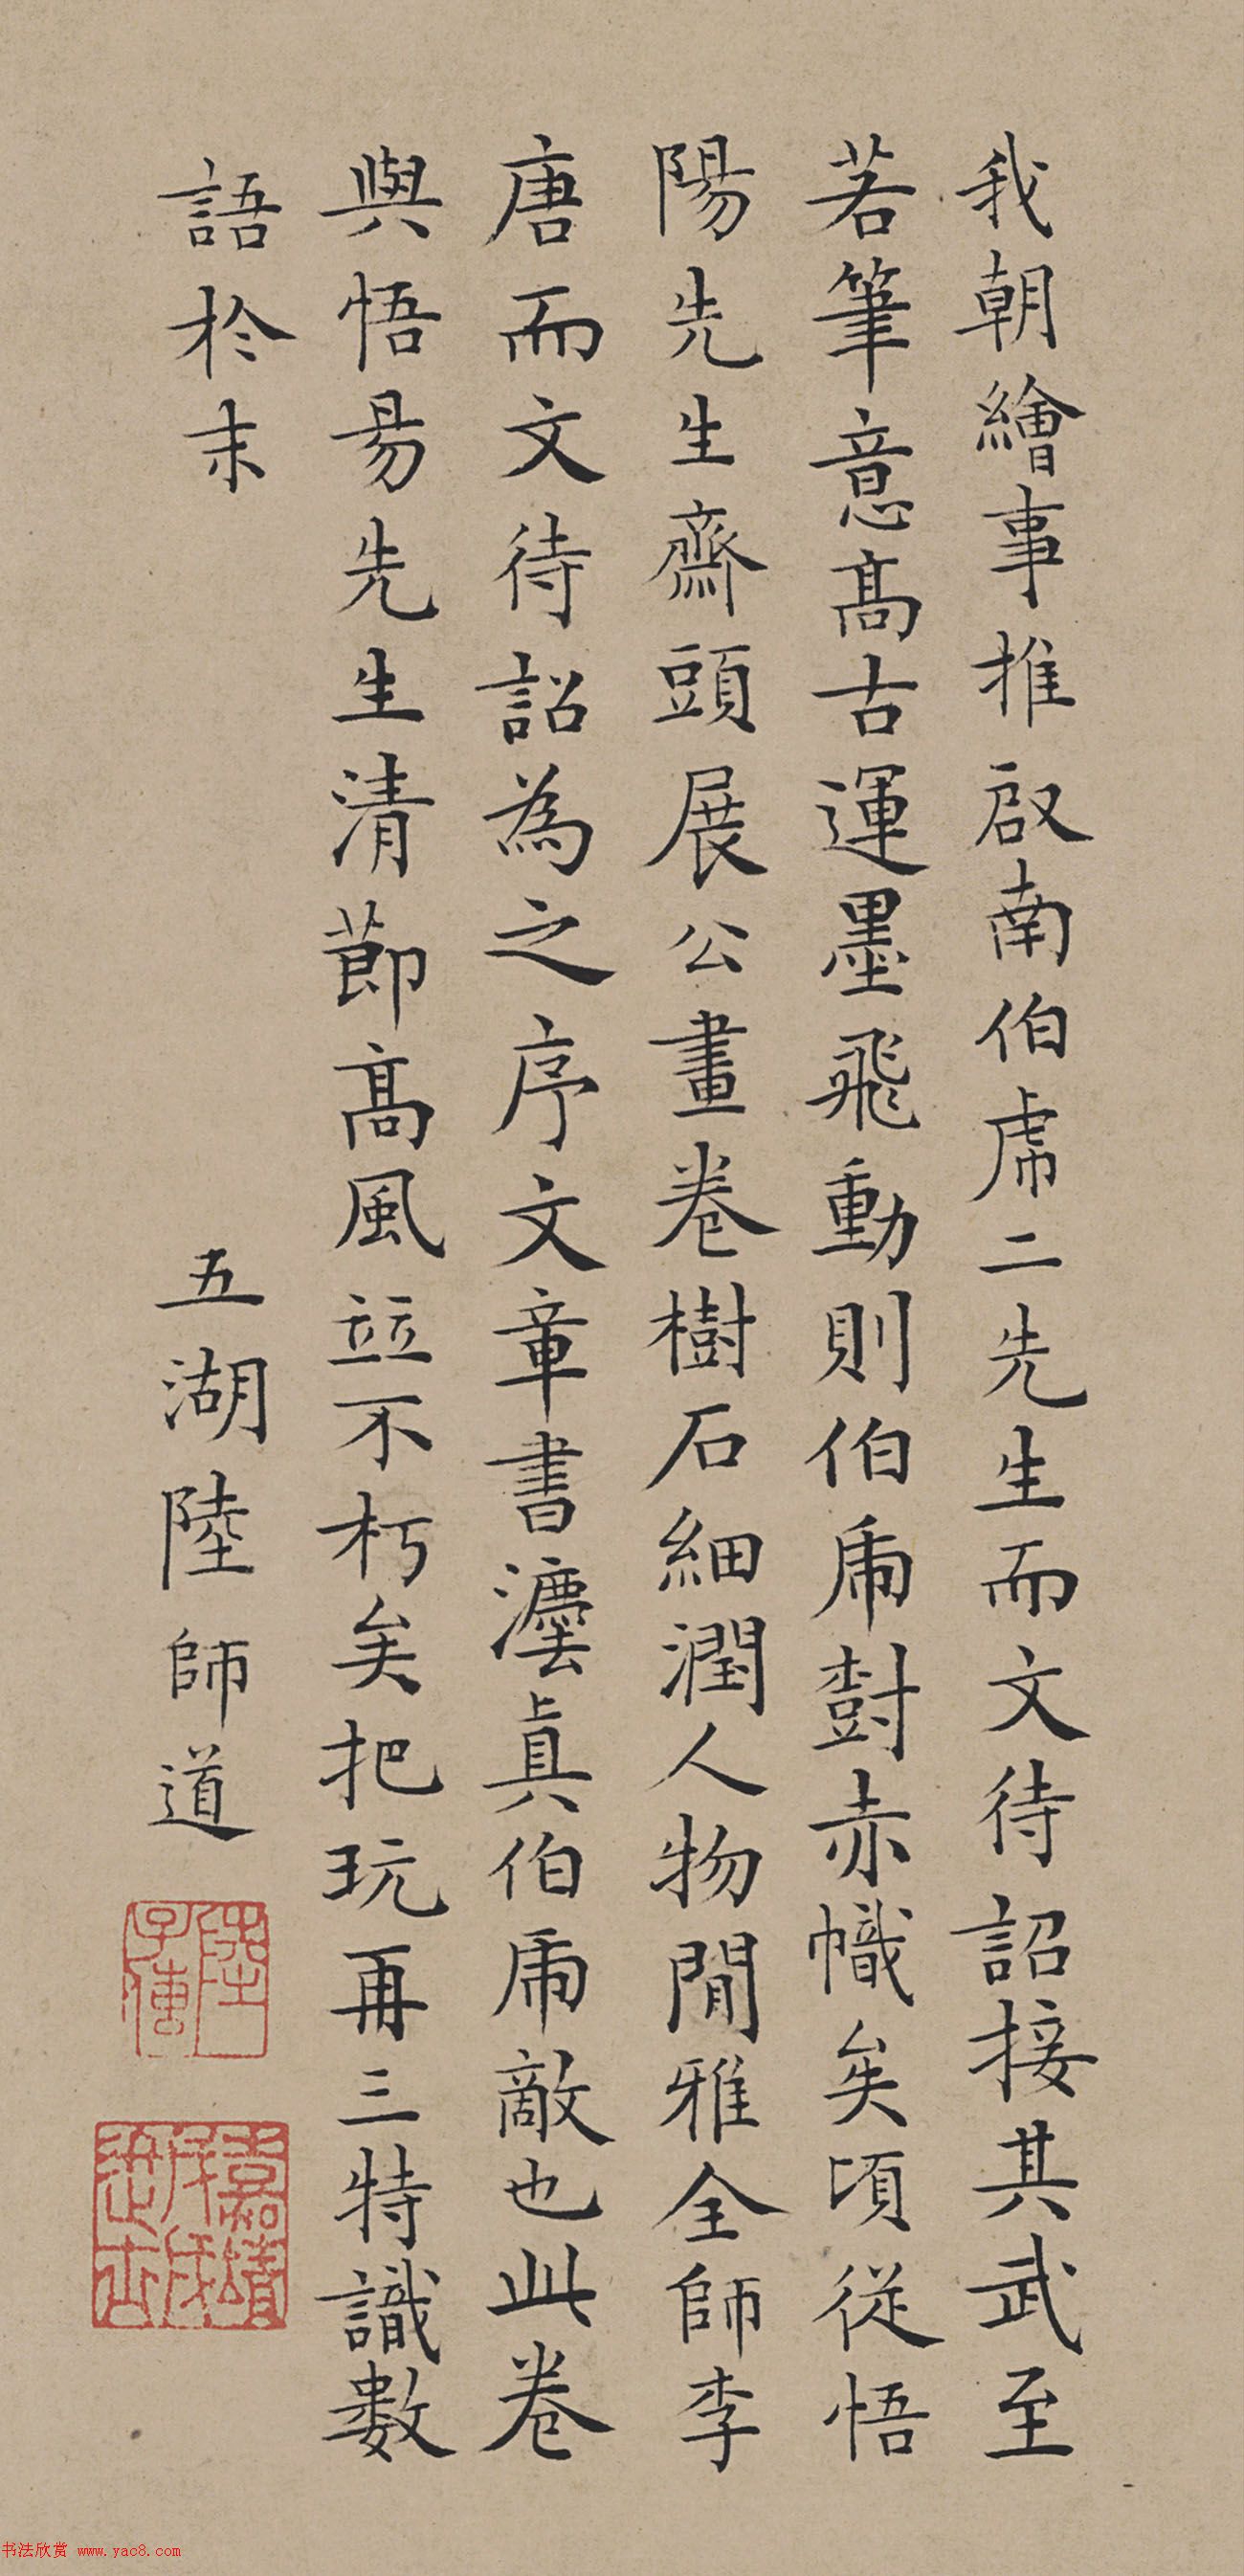 我朝繪事推啟南伯虎二先生而文待詔接其武至
若筆意高古運墨飛動則伯虎樹赤幟矣頃從悟
陽先生齋頭展公畫卷樹石細潤人物閒雅全師李
唐而文待詔為之序文章書灋真伯虎敵也此卷
與悟昜先生清節高風竝不朽矣把玩再三特識數
語於末
五湖陸師道
陸子傳
嘉靖戊戌進士
书法欣赏 www.yac8.com